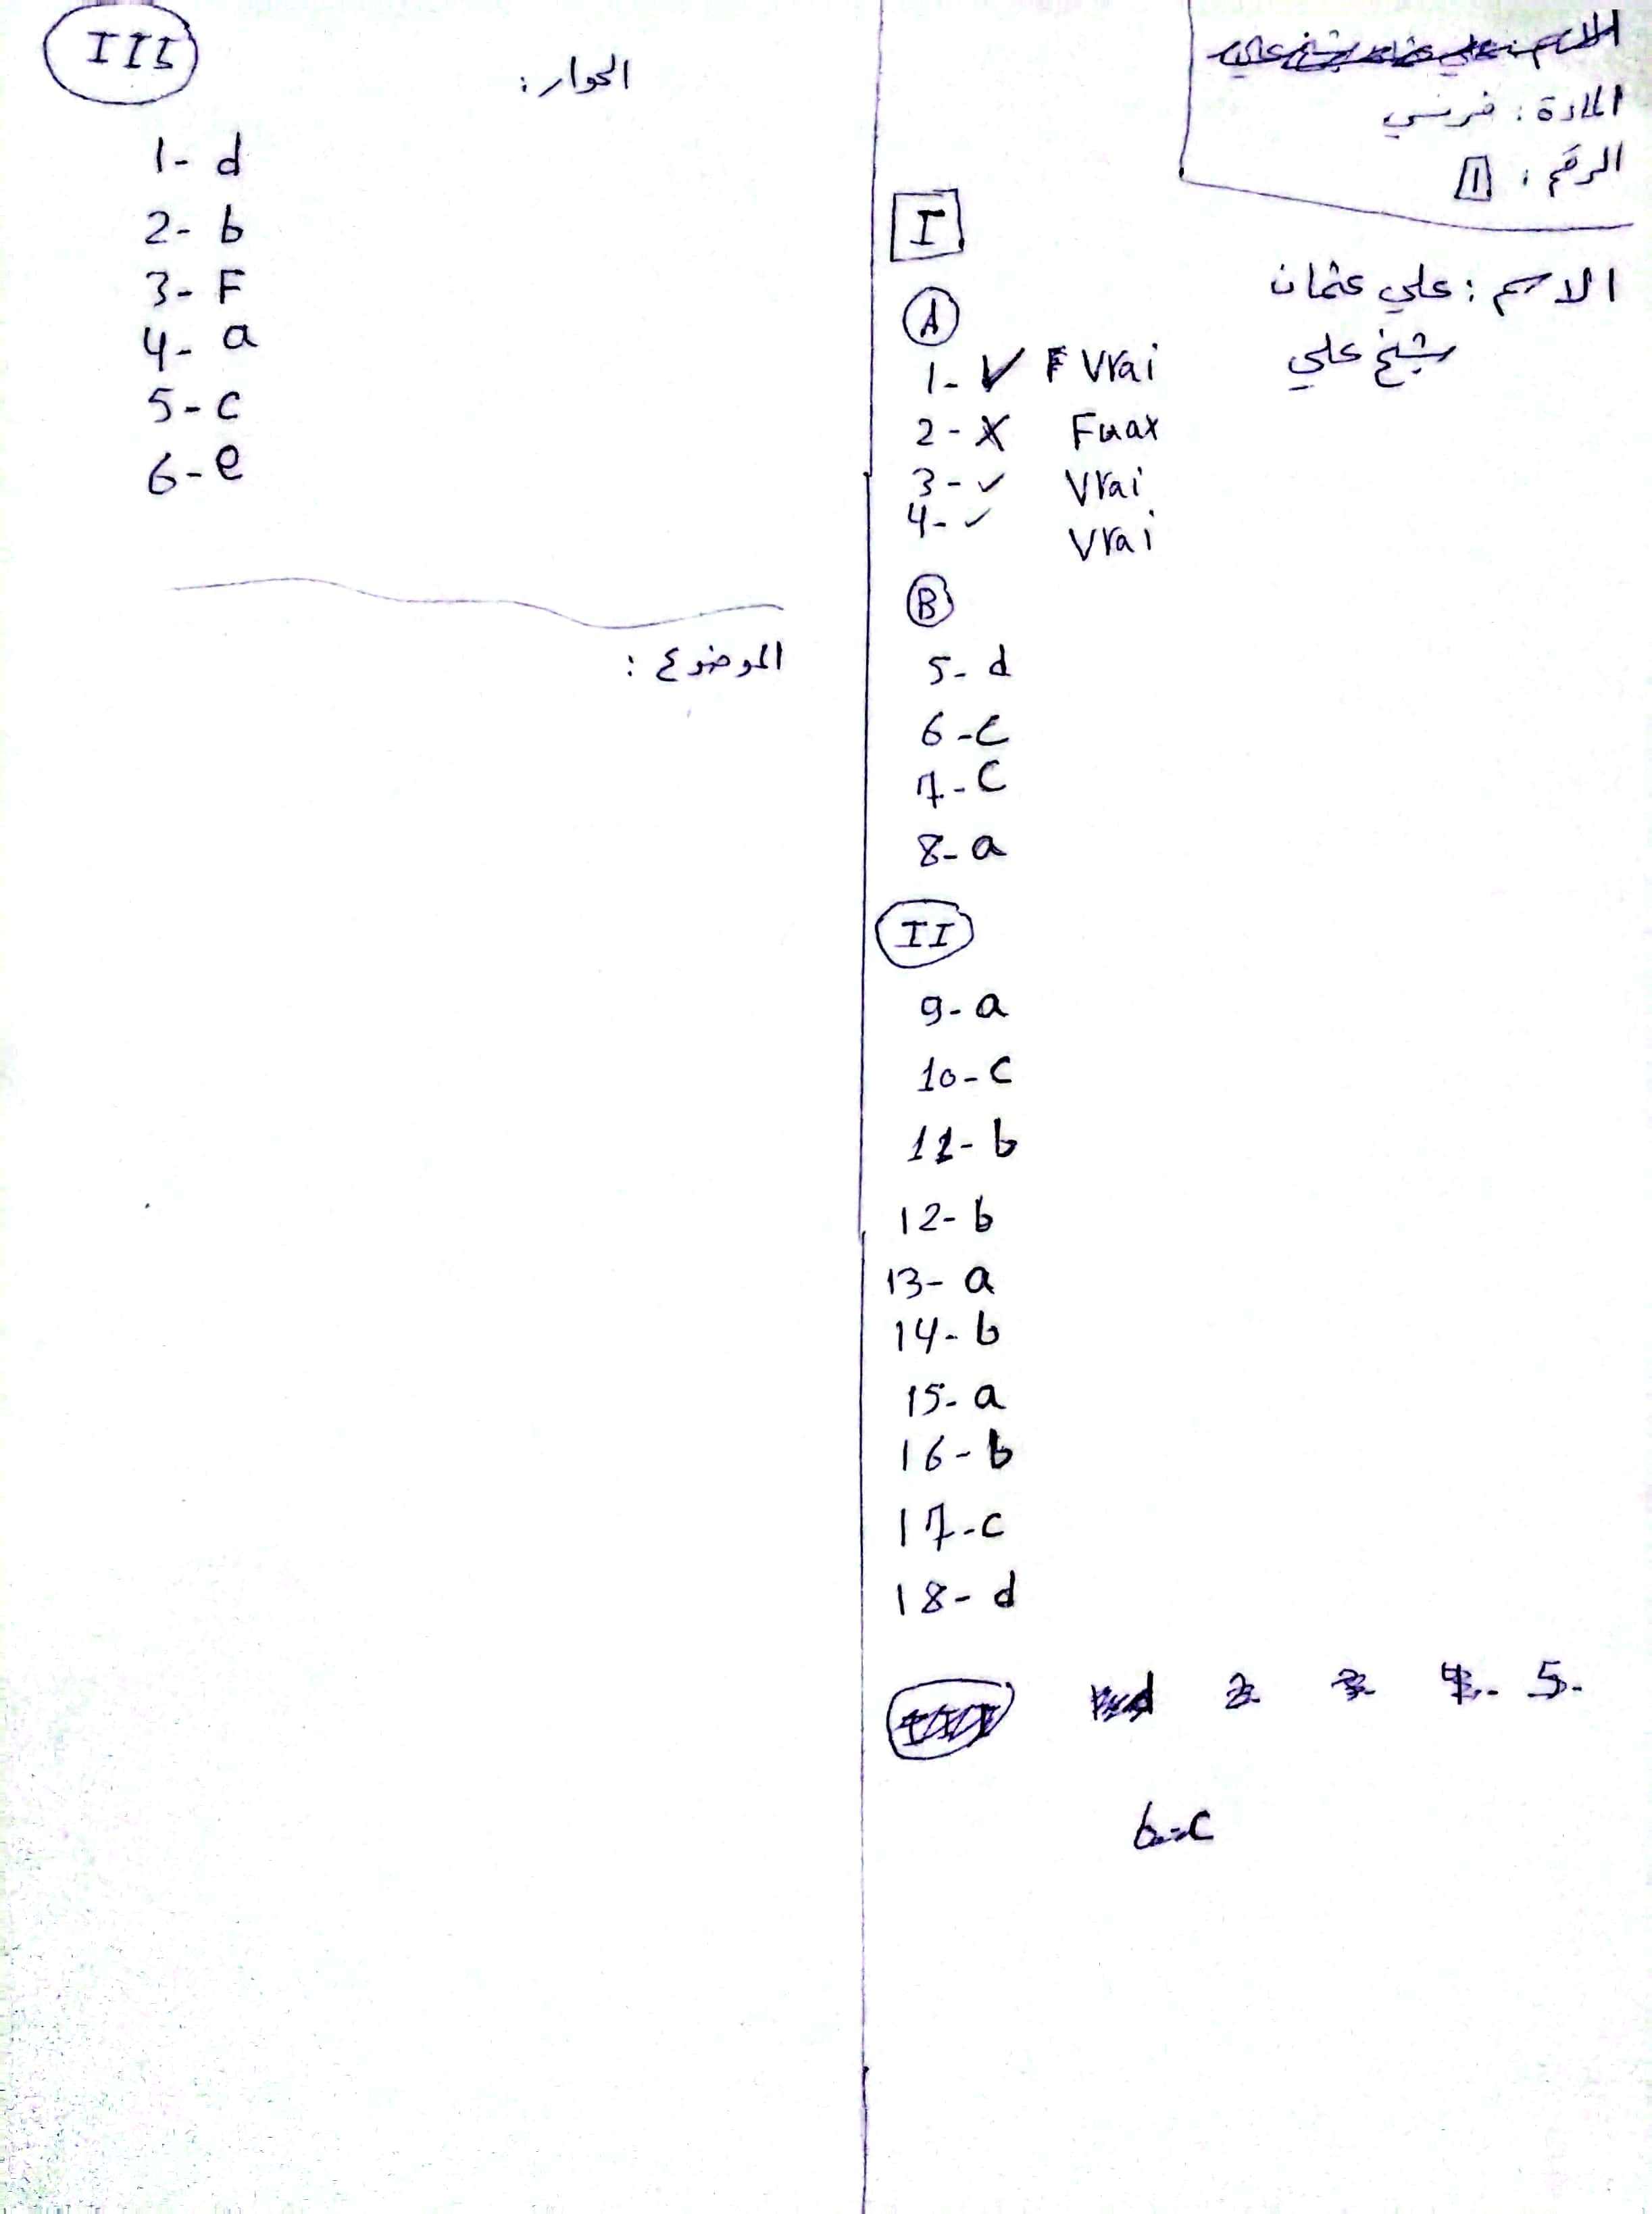 المادة : فرنسي
الرقم : 1
الاسم : علي عثمان
شيخ علي
I
A
1- ✓ Vrai
2- X Fuax
3- ✓ Vrai
4- ✓ Vrai
B
5- d
6- c
7- C
8- a
II
9- a
10- c
11- b
12- b
13- a
14- b
15- a
16- b
17- c
18- d
5-
6-c
III
الحوار :
1- d
2- b
3- F
4- a
5- c
6- e
الموضوع :